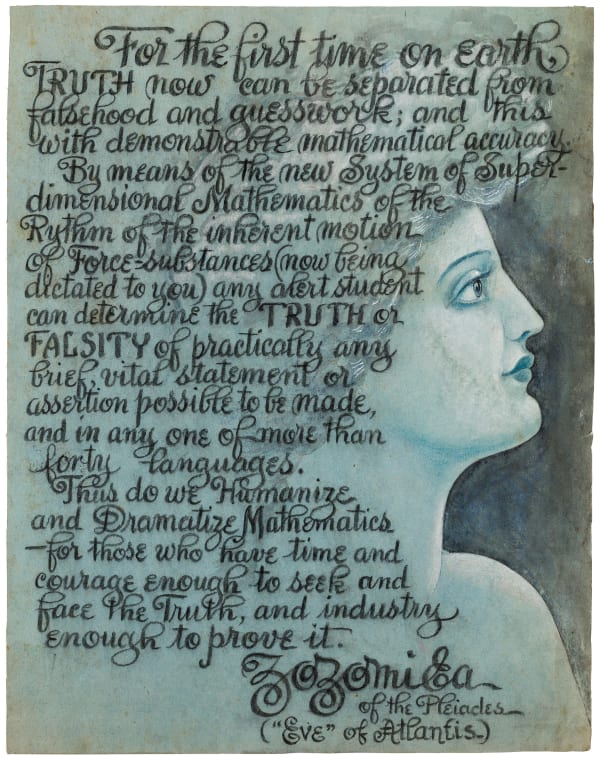 For the first time on earth,
TRUTH now can be separated from
falsehood and guesswork; and this
with demonstrable mathematical accuracy.
By means of the new System of Super-
dimensional Mathematics of the
Rythm of the inherent motion
of Force-substances (now being
dictated to you) any alert student
can determine the TRUTH or
FALSITY of practically any
brief, vital statement or
assertion possible to be made,
and in any one of more than
forty languages.
Thus do we Humanize
and Dramatize Mathematics
—for those who have time and
courage enough to seek and
face the Truth, and industry
enough to prove it.
ZozomiEa
of the Pleiades
("Eve" of Atlantis.)